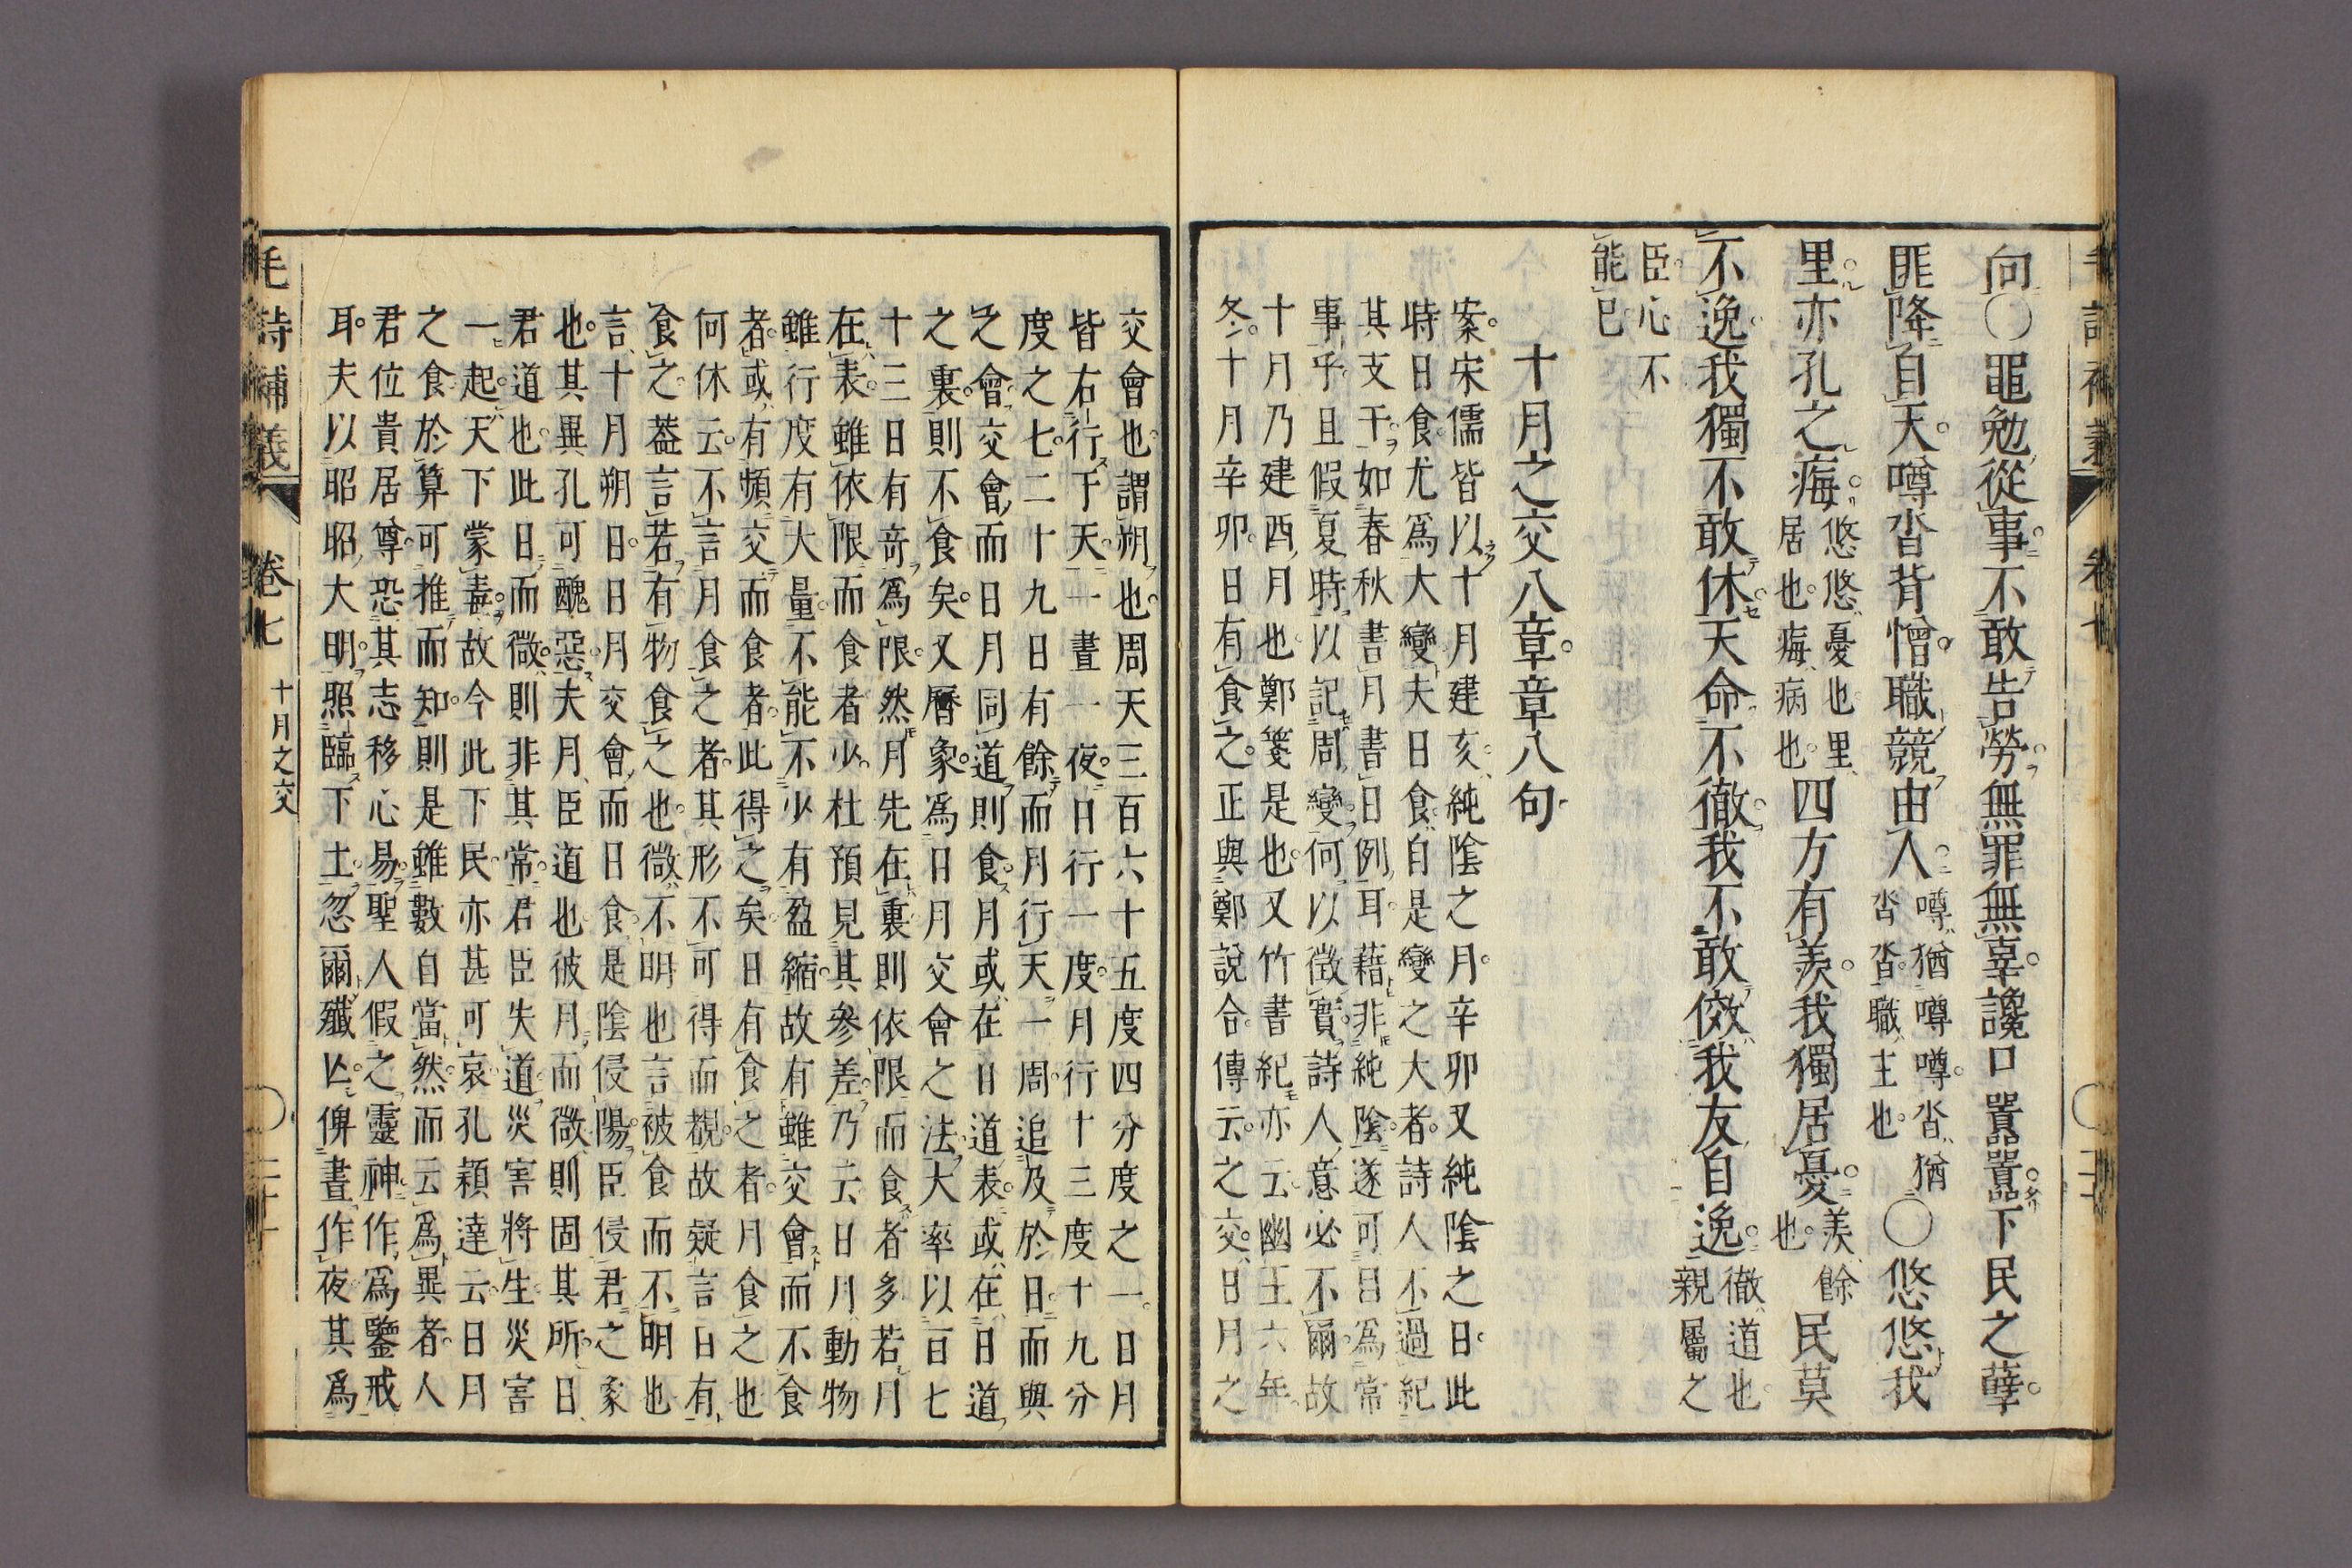 向○黽勉從事不敢告勞無罪無辜讒口囂囂下民之孽
匪降自天噂沓背憎職競由人噂猶噂噂沓猶沓沓職主也○悠悠我
里亦孔之痗悠悠憂也里居也痗病也四方有羨我獨居憂羨餘也民莫
不逸我獨不敢休天命不徹我不敢傚我友自逸徹道也親屬之
臣心不能已
十月之交八章章八句
案宋儒皆以十月建亥純陰之月辛卯又純陰之日此
時日食尤爲大變夫日食自是變之大者詩人不過紀
其支干如春秋書月書日例耳藉非純陰遂可日爲常
事乎且假夏時以記周變何以徵實詩人意必不爾故
十月乃建酉月也鄭箋是也又竹書紀亦云幽王六年
冬十月辛卯日有食之正與鄭說合傳云之交日月之
交會也謂朔也周天三百六十五度四分度之一日月
皆右行于天一晝一夜日行一度月行十三度十九分
度之七二十九日有餘而月行天一周追及於日而與
之會交會而日月同道則食月或在日道表或在日道
之裏則不食矣又曆象爲日月交會之法大率以百七
十三日有奇爲限然月先在裏則依限而食者多若月
在表雖依限而食者少杜預見其參差乃云日月動物
雖行度有大量不能不少有盈縮故有雖交會而不食
者或有頻交而食者此得之矣日有食之者月食之也
何休云不言月食之者其形不可得而覩故疑言日有
食之葢言若有物食之也微不明也言被食而不明也
言十月朔日日月交會而日食是陰侵陽臣侵君之象
也其異孔可醜惡夫月臣道也彼月而微則固其所日
君道也此日而微則非其常君臣失道災害將生災害
一起天下蒙毒故今此下民亦甚可哀孔穎達云日月
之食於算可推而知則是雖數自當然而云爲異者人
君位貴居尊恐其志移心易聖人假之靈神作爲鑒戒
耳夫以昭昭大明照臨下土忽爾殲亡俾晝作夜其爲
毛詩補義 卷七 十月之交